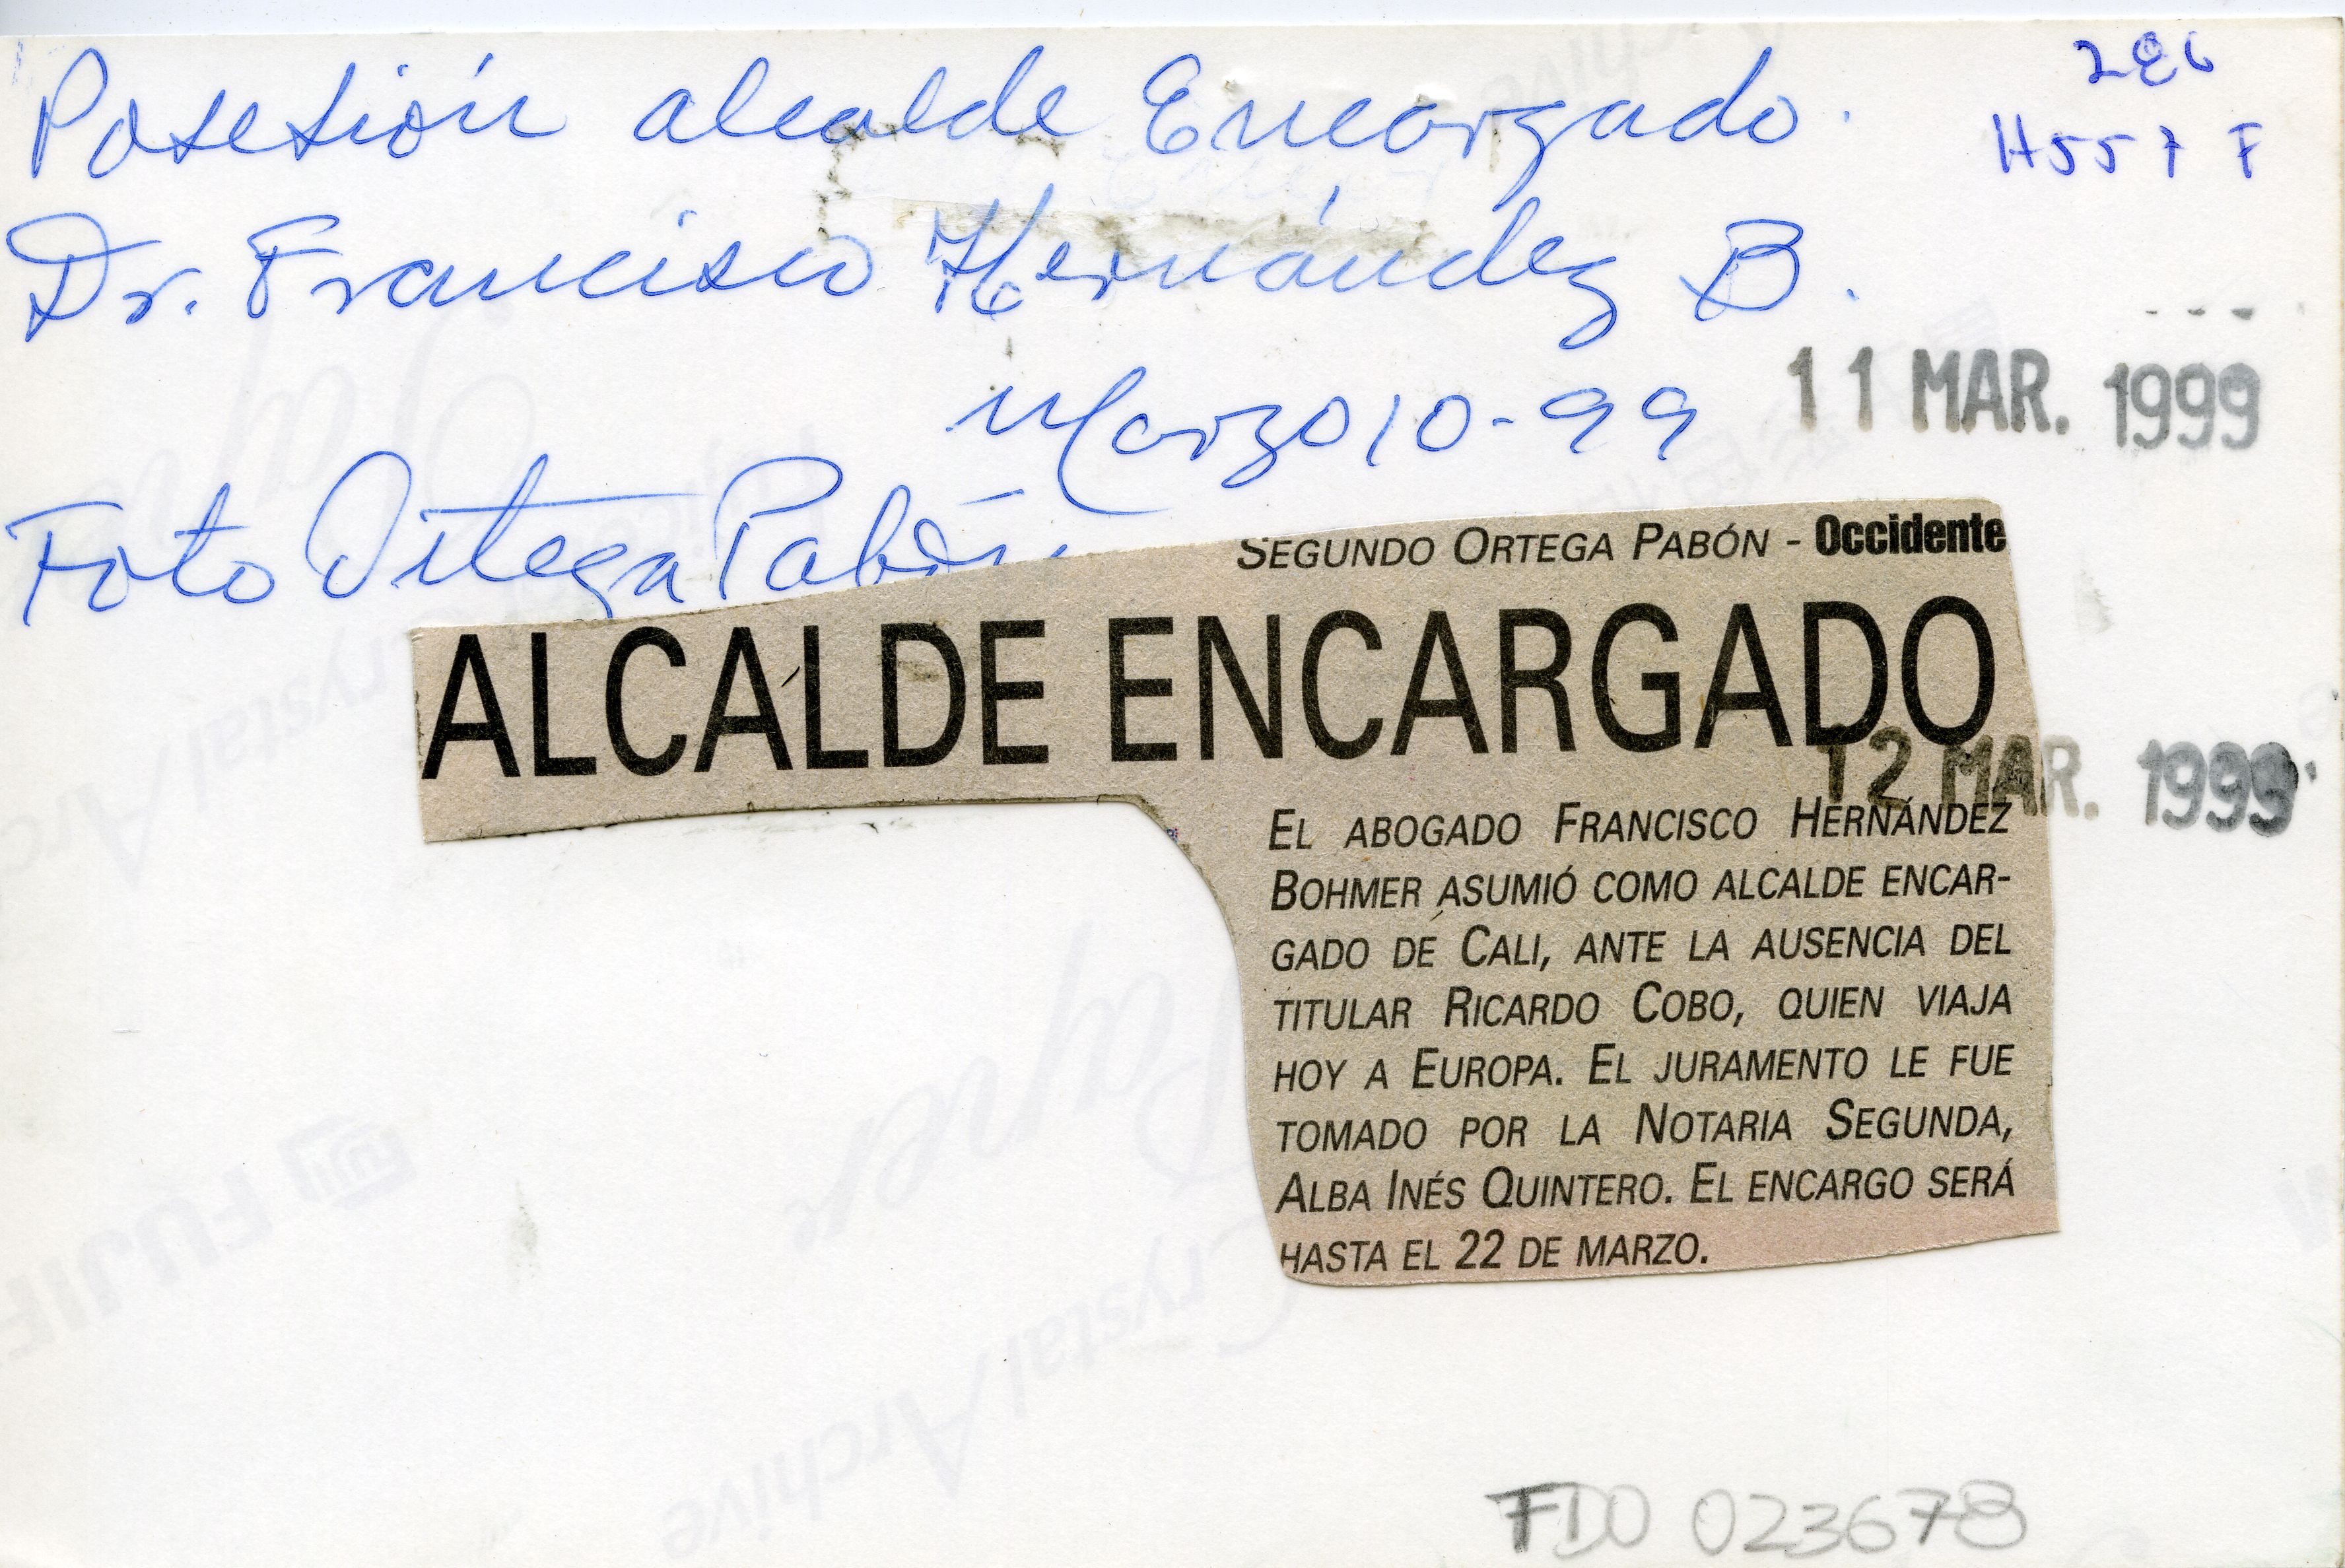 Posesión alcalde Encargado.
286
H557 F
Dr. Francisco Hernández B.
Marzo 10-99
11 MAR. 1999
Foto Ortega Pabón
SEGUNDO ORTEGA PABÓN - Occidente
ALCALDE ENCARGADO
12 MAR. 1999
EL ABOGADO FRANCISCO HERNÁNDEZ
BOHMER ASUMIÓ COMO ALCALDE ENCAR-
GADO DE CALI, ANTE LA AUSENCIA DEL
TITULAR RICARDO COBO, QUIEN VIAJA
HOY A EUROPA. EL JURAMENTO LE FUE
TOMADO POR LA NOTARIA SEGUNDA,
ALBA INÉS QUINTERO. EL ENCARGO SERÁ
HASTA EL 22 DE MARZO.
FUJIF
Crystal Archive
Paper
FDO 023678